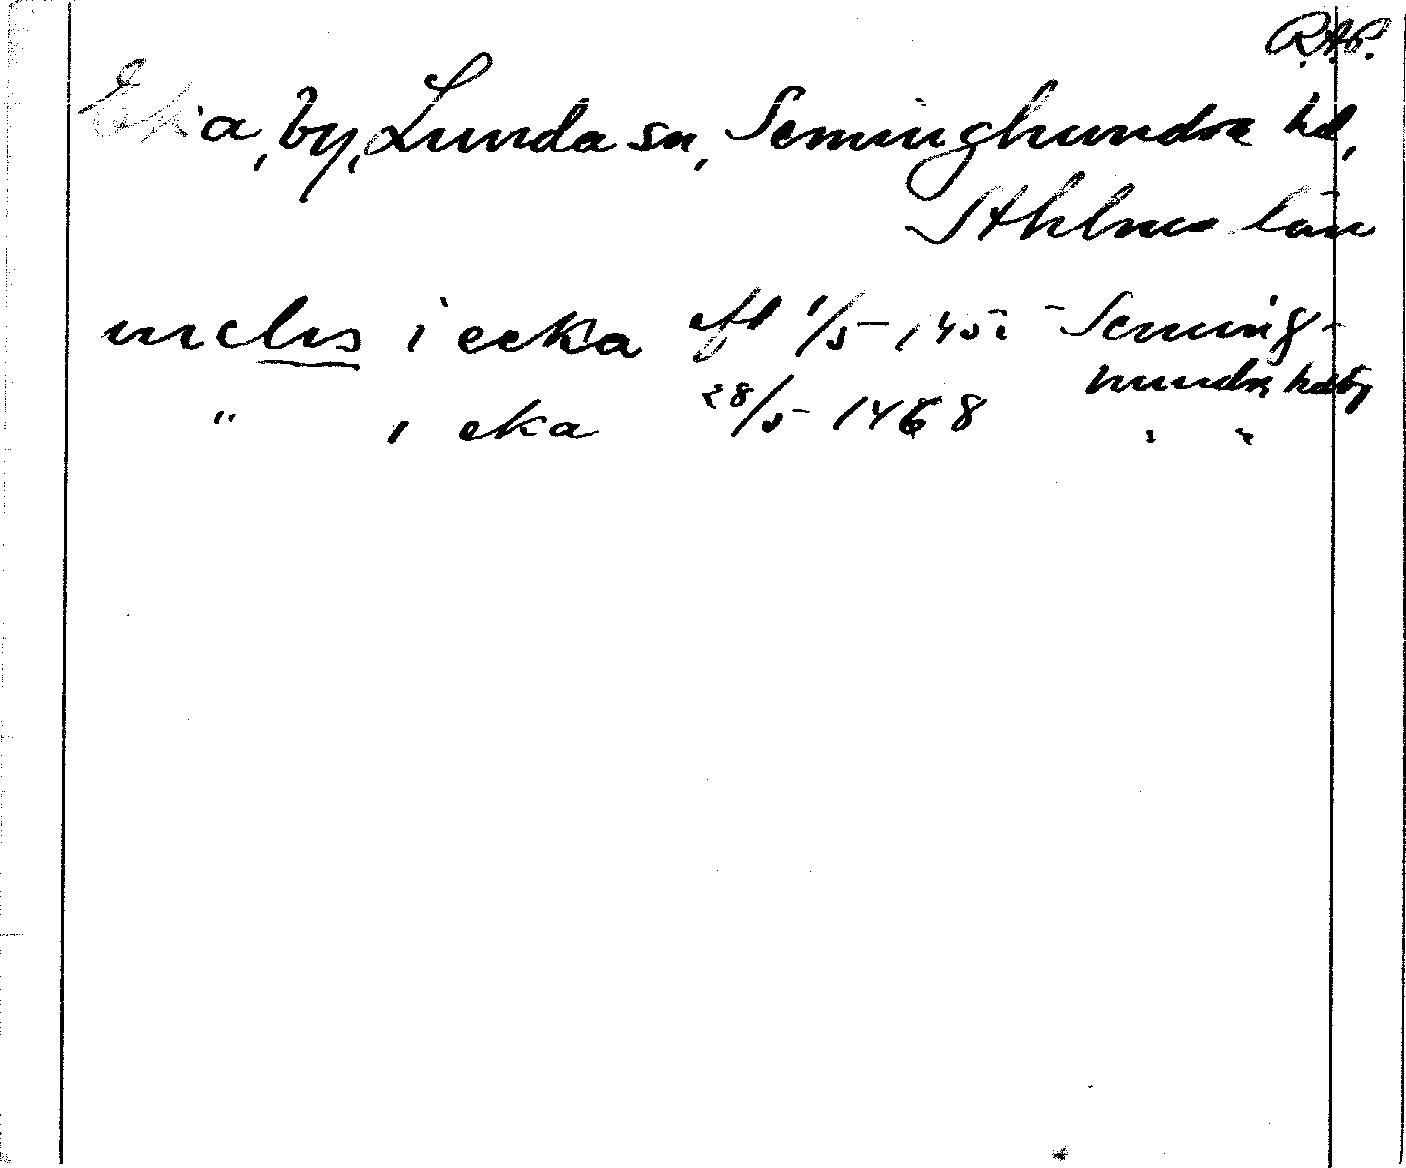 R.A.P.
Eka, by, Lunda sn, Seminghundra hd,
Sthlms län
niclis i eeka afl 1/5 1452 Seming-
hundra hdtg
" i eka 28/5 1468 " "